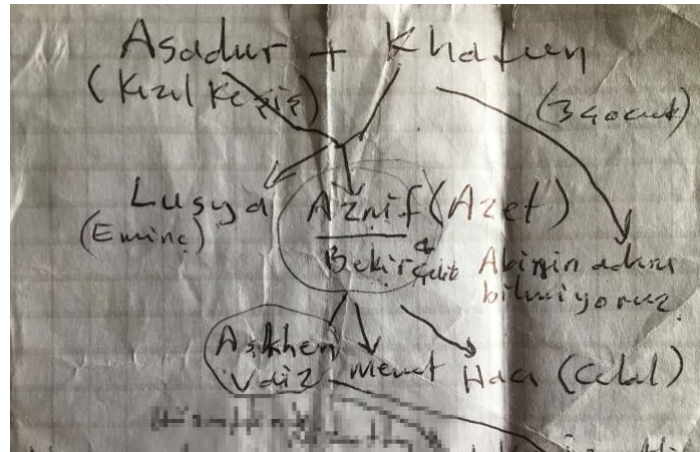 Asadur + Khatun
(Kızıl Keşiş)
(3 çocuk)
Lusya Aznif (Azet)
(Emine)
Bekir Abinin adını
bilmiyoruz
Askhen
Vaiz Memet Hacı (Celal)